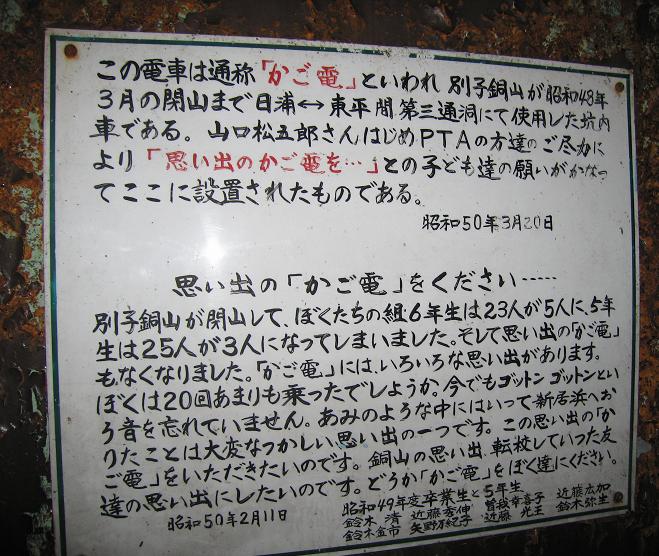 この電車は通称「かご電」といわれ 別子銅山が昭和48年
3月の閉山まで日浦↔東平間第三通洞にて使用した坑内
車である。山口松五郎さんはじめPTAの方達のご尽力に
より「思い出のかご電を…」との子ども達の願いがかなっ
てここに設置されたものである。
昭和50年3月20日
思い出の「かご電」をください……
別子銅山が閉山して、ぼくたちの組6年生は23人が5人に、5年
生は25人が3人になってしまいました。そして思い出の「かご電」
もなくなりました。「かご電」には、いろいろな思い出があります。
ぼくは20回あまりも乗ったでしょうか。今でもゴットンゴットンとい
う音を忘れていません。あみのような中にはいって新居浜へお
りたことは大変なつかしい思い出の一つです。この思い出の「か
ご電」をいただきたいのです。銅山の思い出、転校していった友
達の思い出にしたいのです。どうか「かご電」をぼく達にください。
昭和50年2月11日
昭和49年度卒業生と5年生
鈴木 清 近藤秀伸 曽我幸喜子 近藤広加
鈴木金市 矢野万紀子 近藤 光王 鈴木弥生